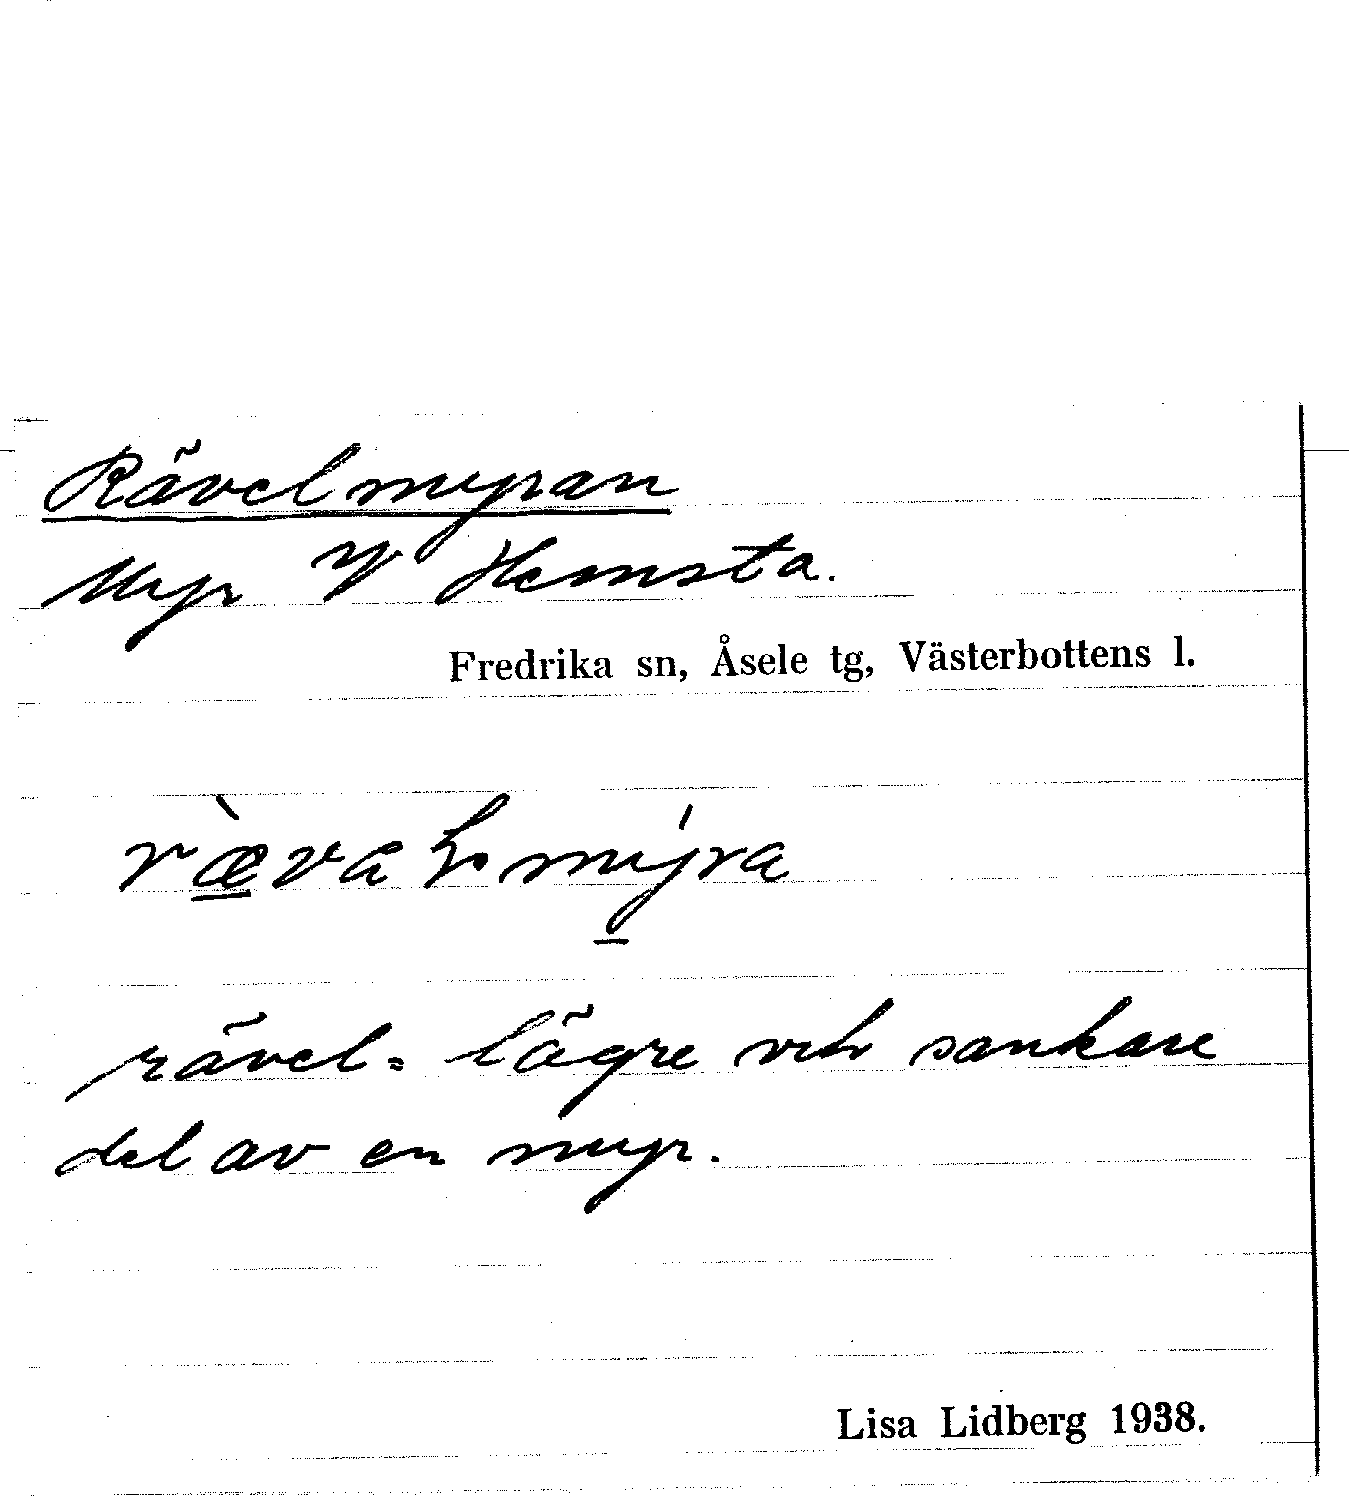 Rävelmyran
Myr V Hemsta.
Fredrika sn, Åsele tg, Västerbottens l.
rävel = lägre och sankare
del av en myr.
Lisa Lidberg 1938.